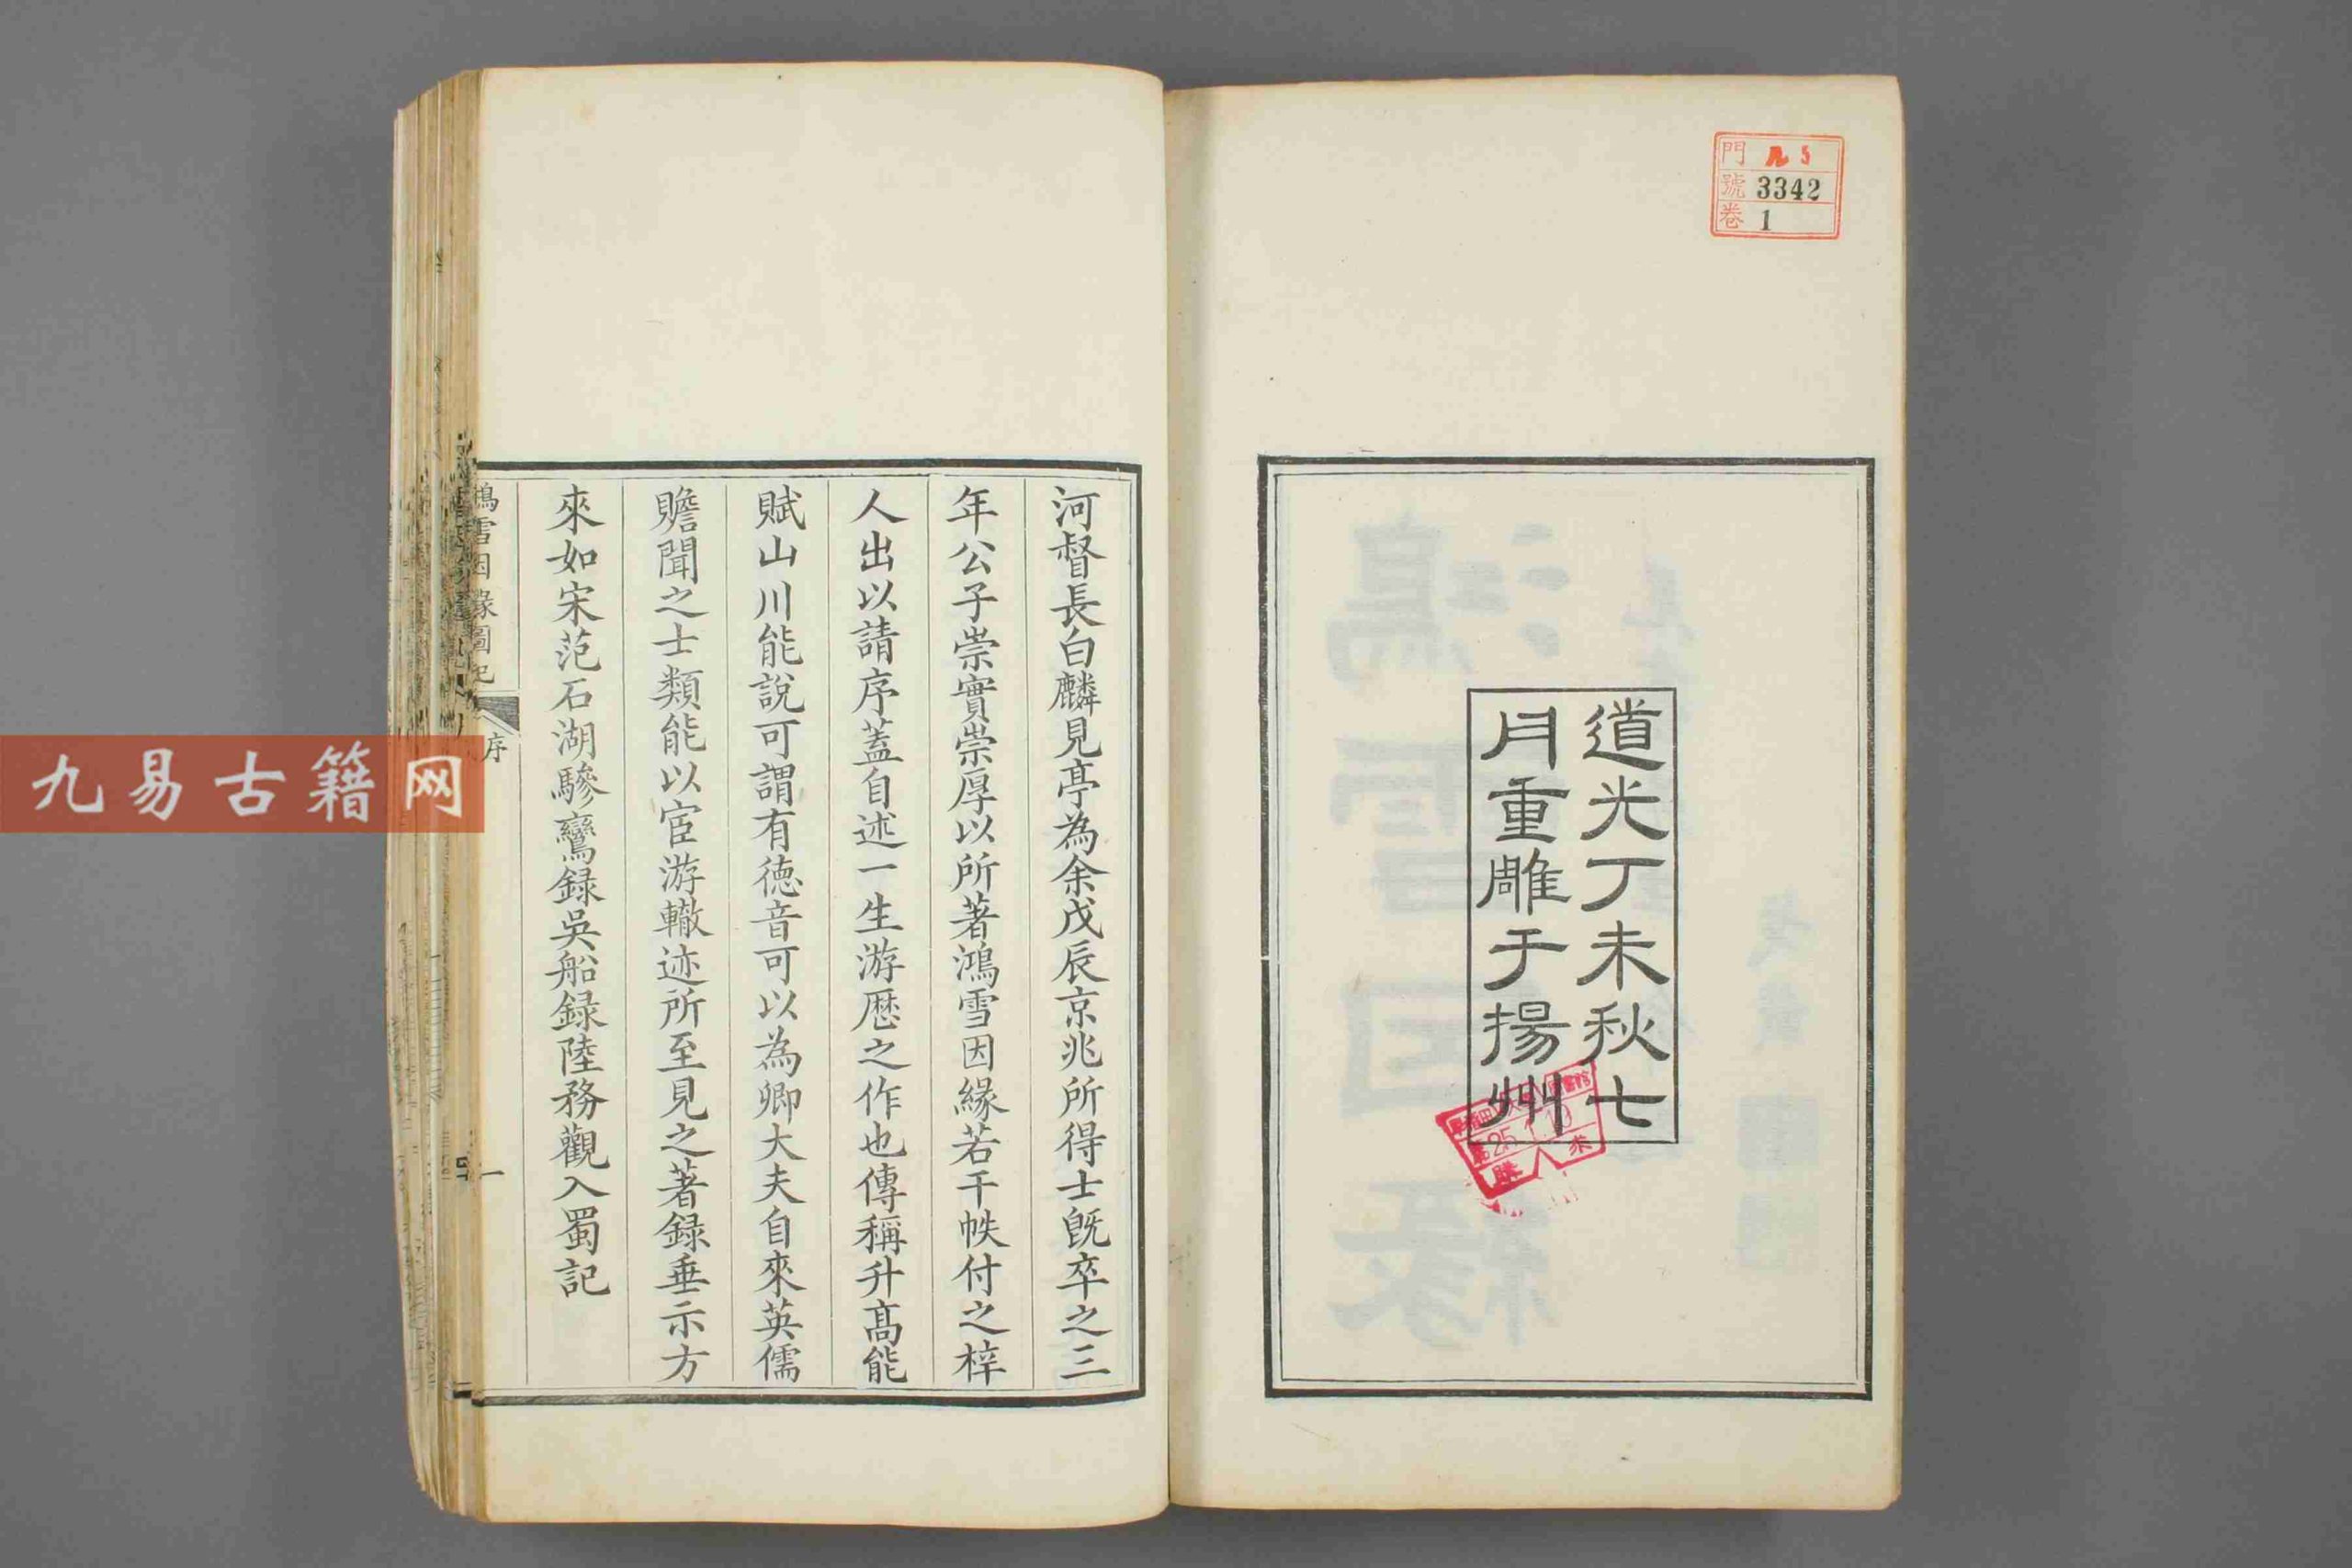 門 5
號 3342
卷 1
道光丁未秋七
月重雕于揚州
河督長白麟見亭為余戊辰京兆所得士既卒之三
年公子崇實崇厚以所著鴻雪因緣若干帙付之梓
人出以請序蓋自述一生游歷之作也傳稱升高能
賦山川能說可謂有德音可以為卿大夫自來英儒
贍聞之士類能以宦游轍迹所至見之著録垂示方
來如宋范石湖驂鸞録吳船録陸務觀入蜀記
鴻雪因緣圖記
序
一
九易古籍网